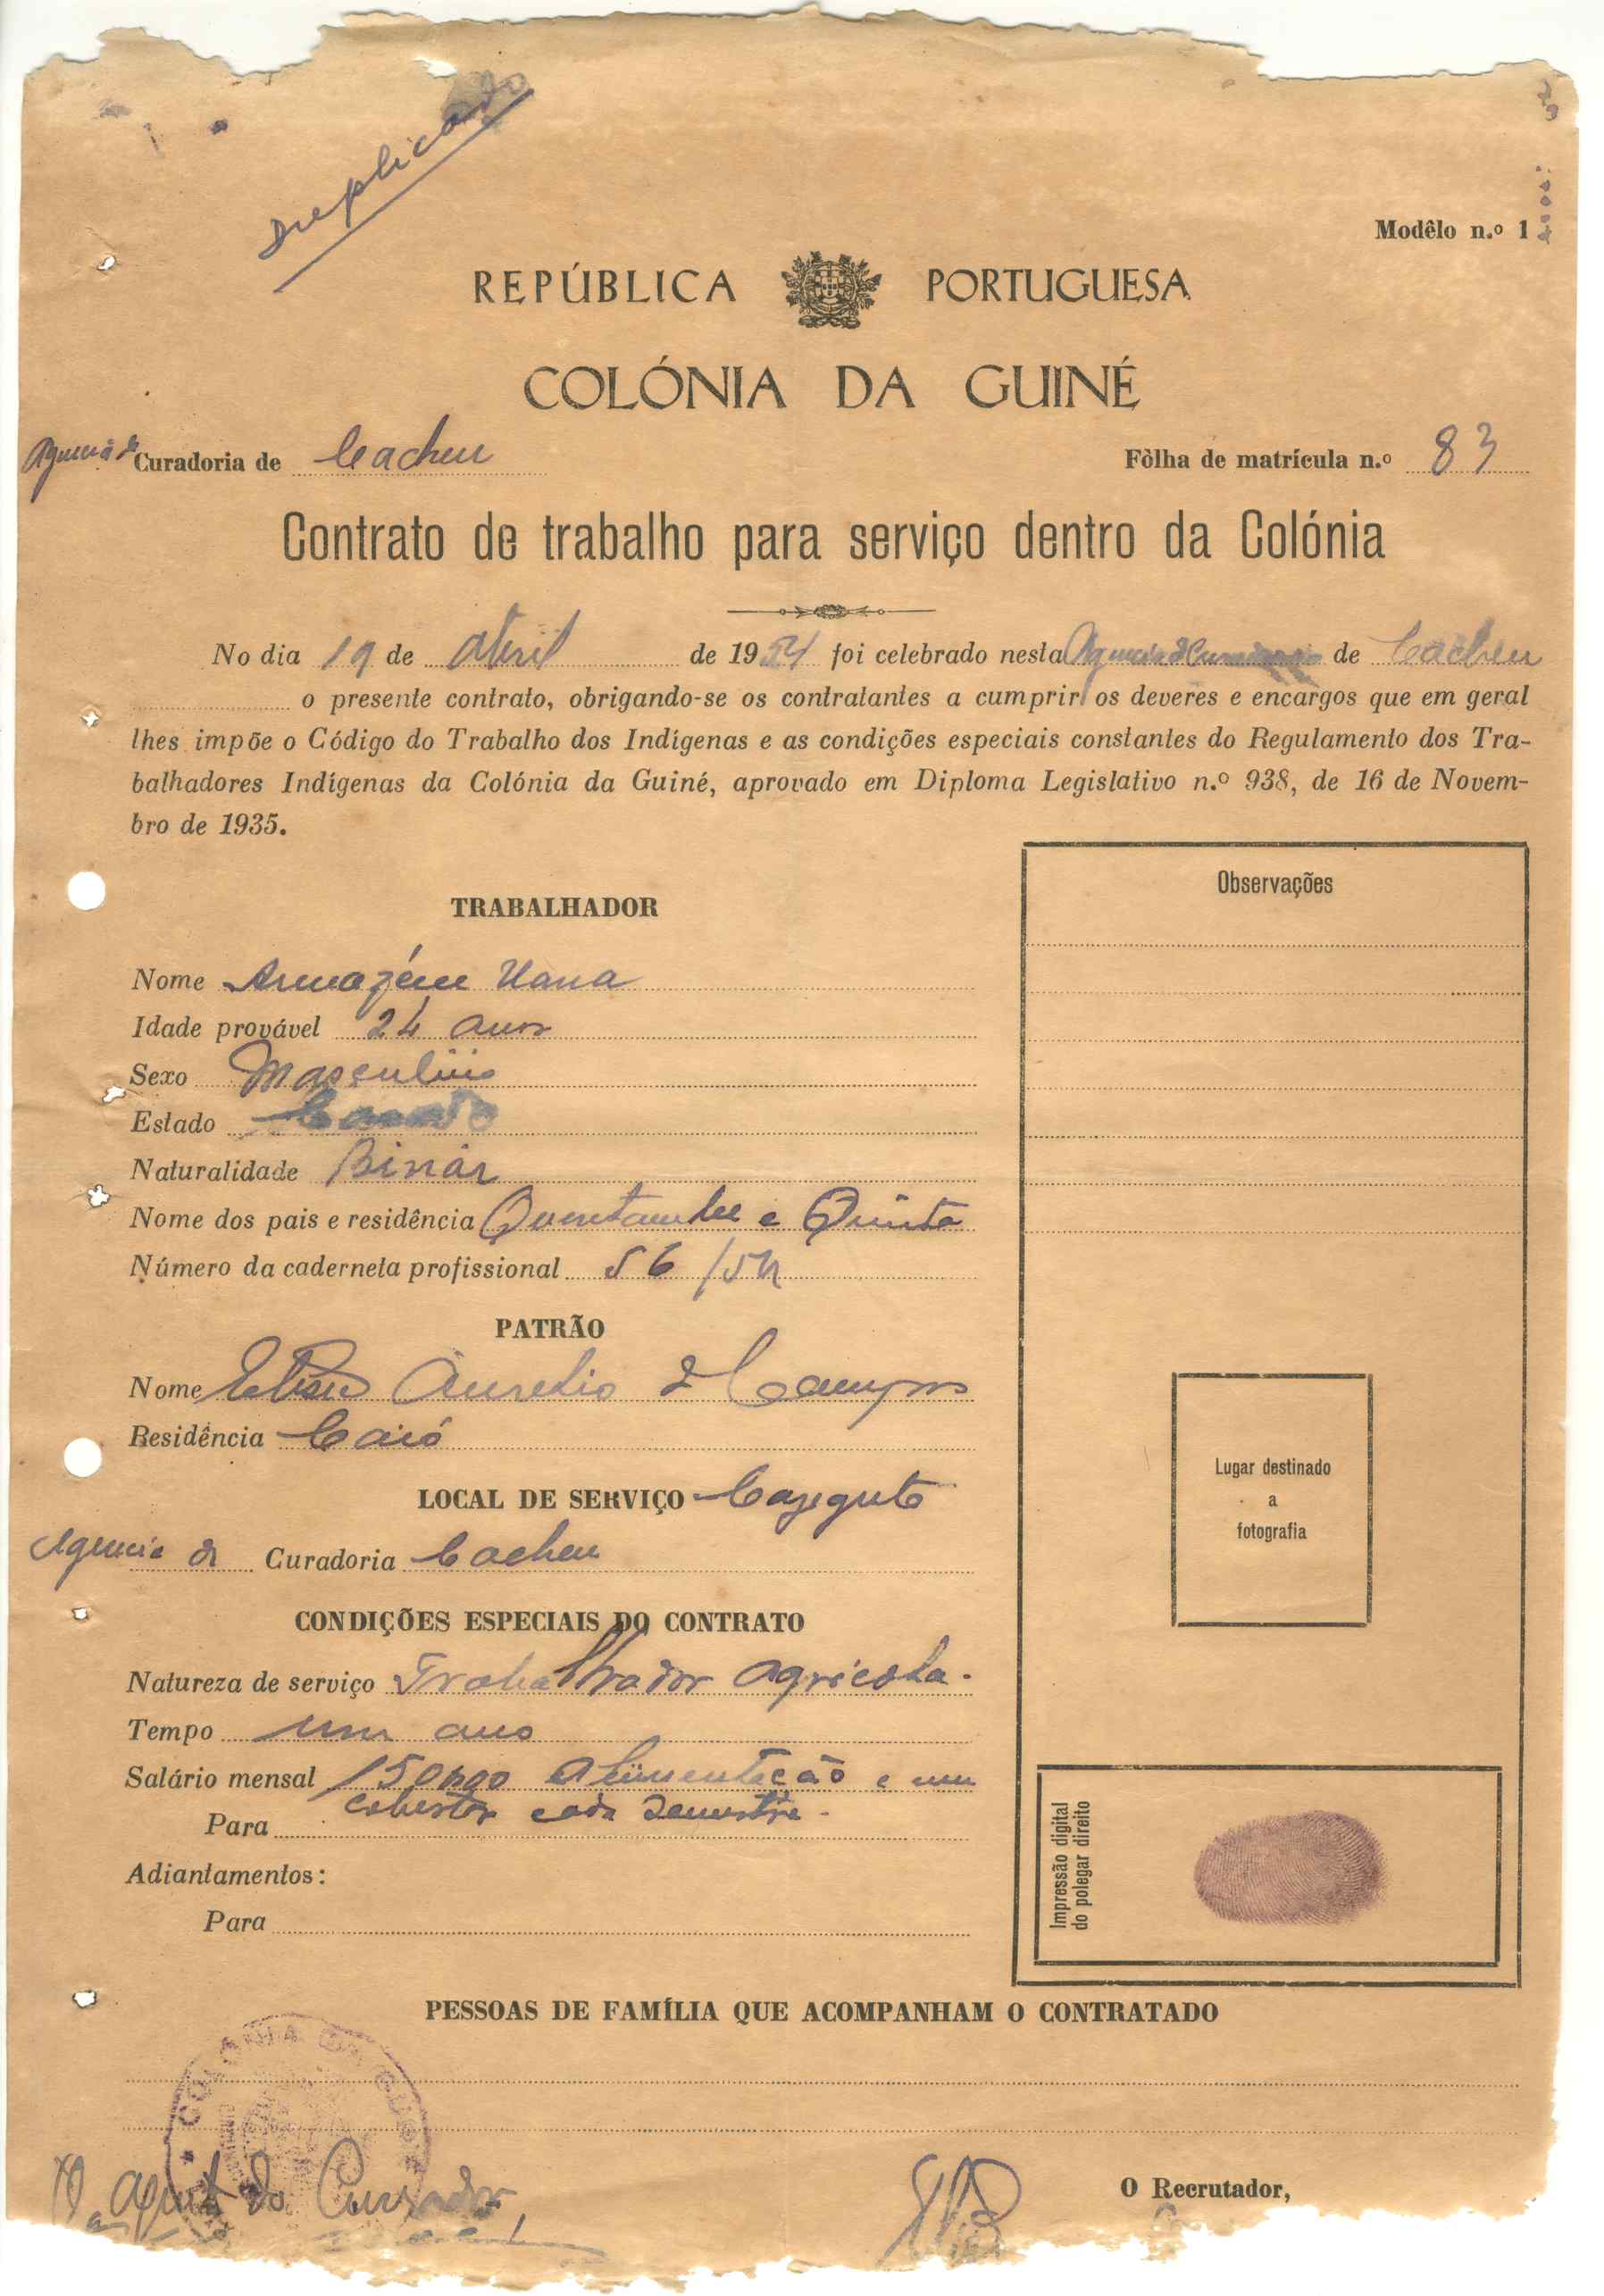 Duplicado
Modêlo n.º 1
REPÚBLICA PORTUGUESA
COLÓNIA DA GUINÉ
Agencia de Curadoria de Cacheu Fôlha de matrícula n.º 83
Contrato de trabalho para serviço dentro da Colónia
No dia 19 de Abril de 1954 foi celebrado nesta de Cacheu
o presente contrato, obrigando-se os contratantes a cumprir os deveres e encargos que em geral
lhes impõe o Código do Trabalho dos Indígenas e as condições especiais constantes do Regulamento dos Tra-
balhadores Indígenas da Colónia da Guiné, aprovado em Diploma Legislativo n.º 938, de 16 de Novem-
bro de 1935.
Observações
TRABALHADOR
Nome Armazém Uana
Idade provável 24 anos
Sexo Masculino
Estado
Naturalidade Binár
Nome dos pais e residência e Quinta
Número da caderneta profissional 56/54
PATRÃO
Nome Aurelio de Campos
Residência Caió
LOCAL DE SERVIÇO Cajeguto
Agencia de Curadoria Cacheu
Lugar destinado
a
fotografia
CONDIÇÕES ESPECIAIS DO CONTRATO
Natureza de serviço Trabalhador agricola.
Tempo um ano
Salário mensal 150$00 Alimentação e um
cobertor cada semestre.
Para
Adiantamentos:
Para
Impressão digital
do polegar direito
PESSOAS DE FAMÍLIA QUE ACOMPANHAM O CONTRATADO
COLONIA DA GUINÉ
O Agente do Curador
O Recrutador,